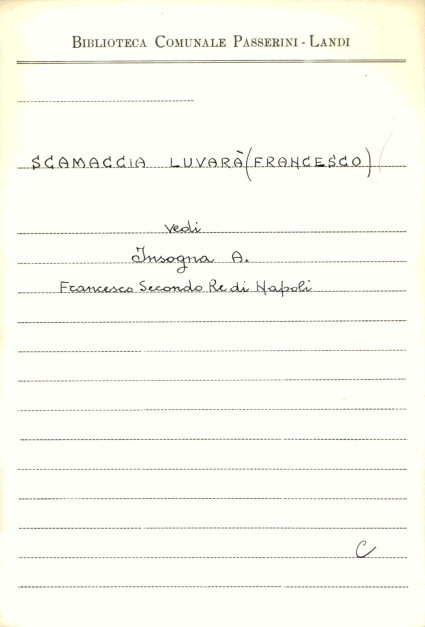 BIBLIOTECA COMUNALE PASSERINI - LANDI
SCAMACCIA LUVARÀ (FRANCESCO)
vedi
Insogna A.
Francesco Secondo Re di Napoli
C